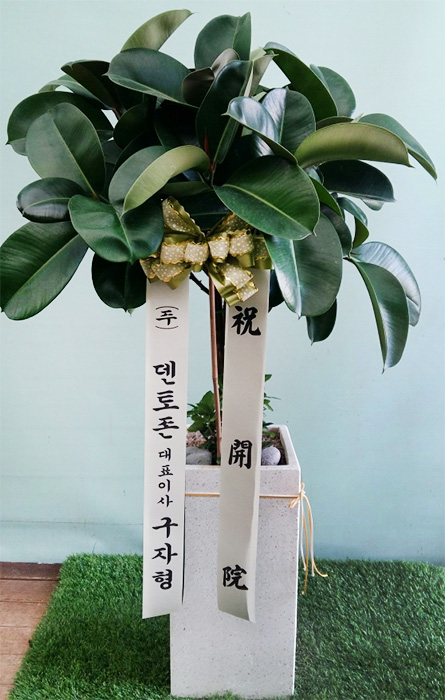 祝開院
(주) 덴토존 대표이사 구자형